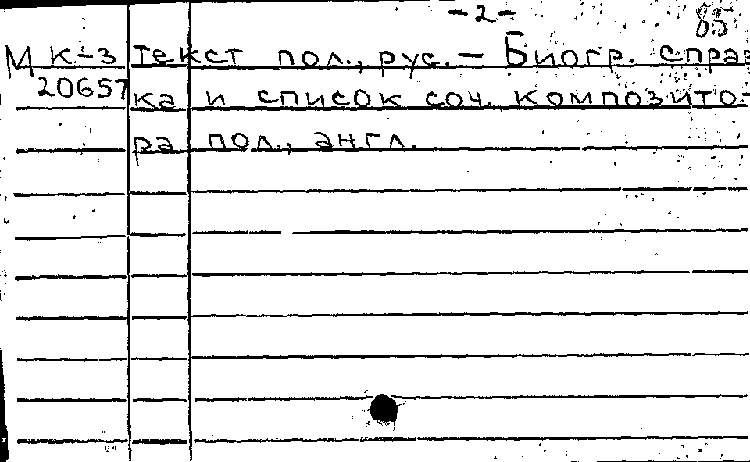 -2-
85
М К-3 Текст пол., рус. - Биогр. справ
20657 ка и список соч. композито-
ра пол., англ.